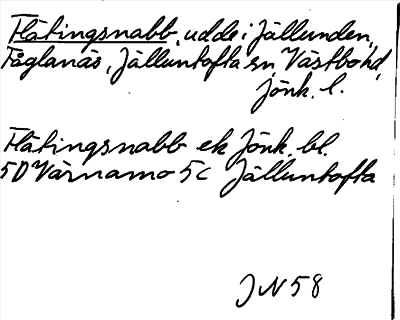 Flåtingsnabb, udde i Jällunden,
Fåglanäs, Jälluntofta sn, Västbo hd,
Jönk. l.
Flåtingsnabb ek Jönk. bl.
5D Värnamo 5c Jälluntofta
JN 58